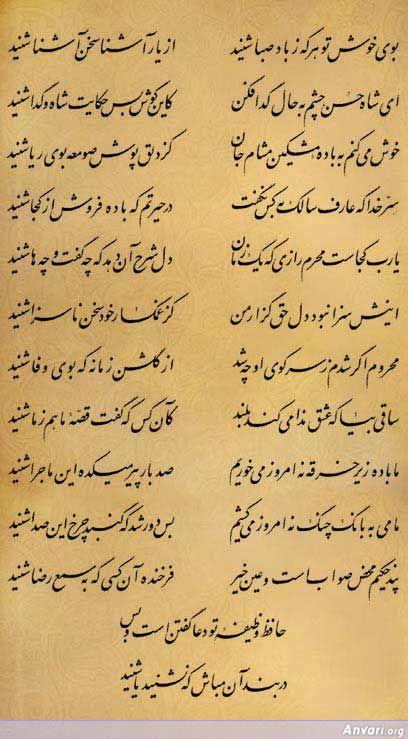 بوی خوش تو هر که ز باد صبا شنید از یار آشنا سخن آشنا شنید
ای شاه حسن چشم به حال گدا فکن کاین گوش بس حکایت شاه و گدا شنید
خوش می کنم به باده مشکین مشام جان کز دلق پوش صومعه بوی ریا شنید
سر خدا که عارف سالک بکس نگفت در حیرتم که باده فروش از کجا شنید
یارب کجاست محرم رازی که یک زمان دل شرح آن دهد که چه گفت و چه ها شنید
اینش سزا نبود دل حق گزار من کز غمگسار خود سخن ناسزا شنید
محروم اگر شدم ز سر کوی او چه شد از گلشن زمانه که بوی وفا شنید
ساقی بیا که عشق ندا می کند بلند کآن کس که گفت قصهٔ ما هم ز ما شنید
ما باده زیر خرقه نه امروز می خوریم صد بار پیر میکده این ماجرا شنید
ما می به بانگ چنگ نه امروز می کشیم بس دور شد که گنبد چرخ این صدا شنید
پند حکیم محض صواب است و عین خیر فرخنده آن کسی که به سمع رضا شنید
حافظ وظیفهٔ تو دعا گفتن است و بس
در بند آن مباش که نشنید یا شنید
Anvari.org